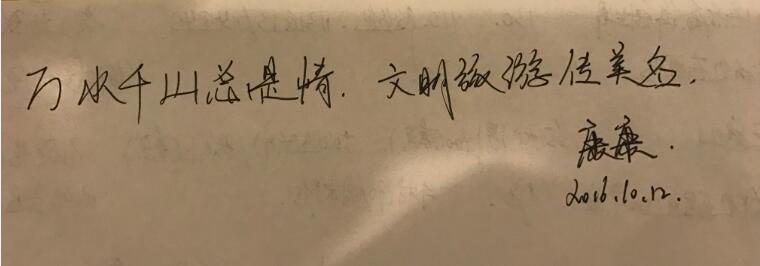 万水千山总是情．文明旅游传美名．
康康．
2016.10.12.